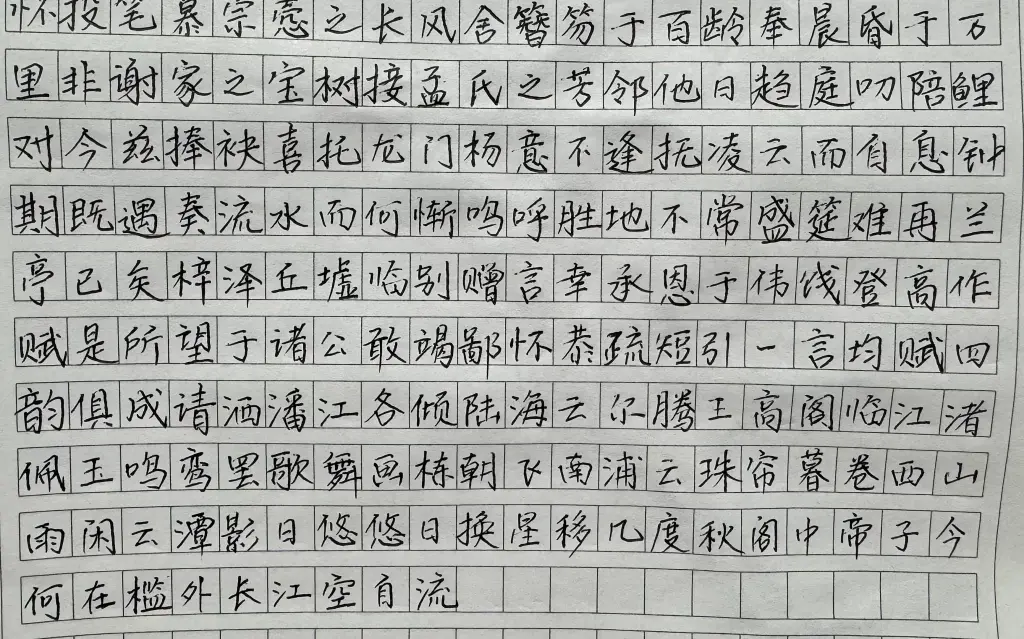 怀投笔慕宗悫之长风舍簪笏于百龄奉晨昏于万
里非谢家之宝树接孟氏之芳邻他日趋庭叨陪鲤
对今兹捧袂喜托龙门杨意不逢抚凌云而自息钟
期既遇奏流水而何惭呜呼胜地不常盛筵难再兰
亭已矣梓泽丘墟临别赠言幸承恩于伟饯登高作
赋是所望于诸公敢竭鄙怀恭疏短引一言均赋四
韵俱成请洒潘江各倾陆海云尔腾王高阁临江渚
佩玉鸣鸾罢歌舞画栋朝飞南浦云珠帘暮卷西山
雨闲云潭影日悠悠日换星移几度秋阁中帝子今
何在槛外长江空自流